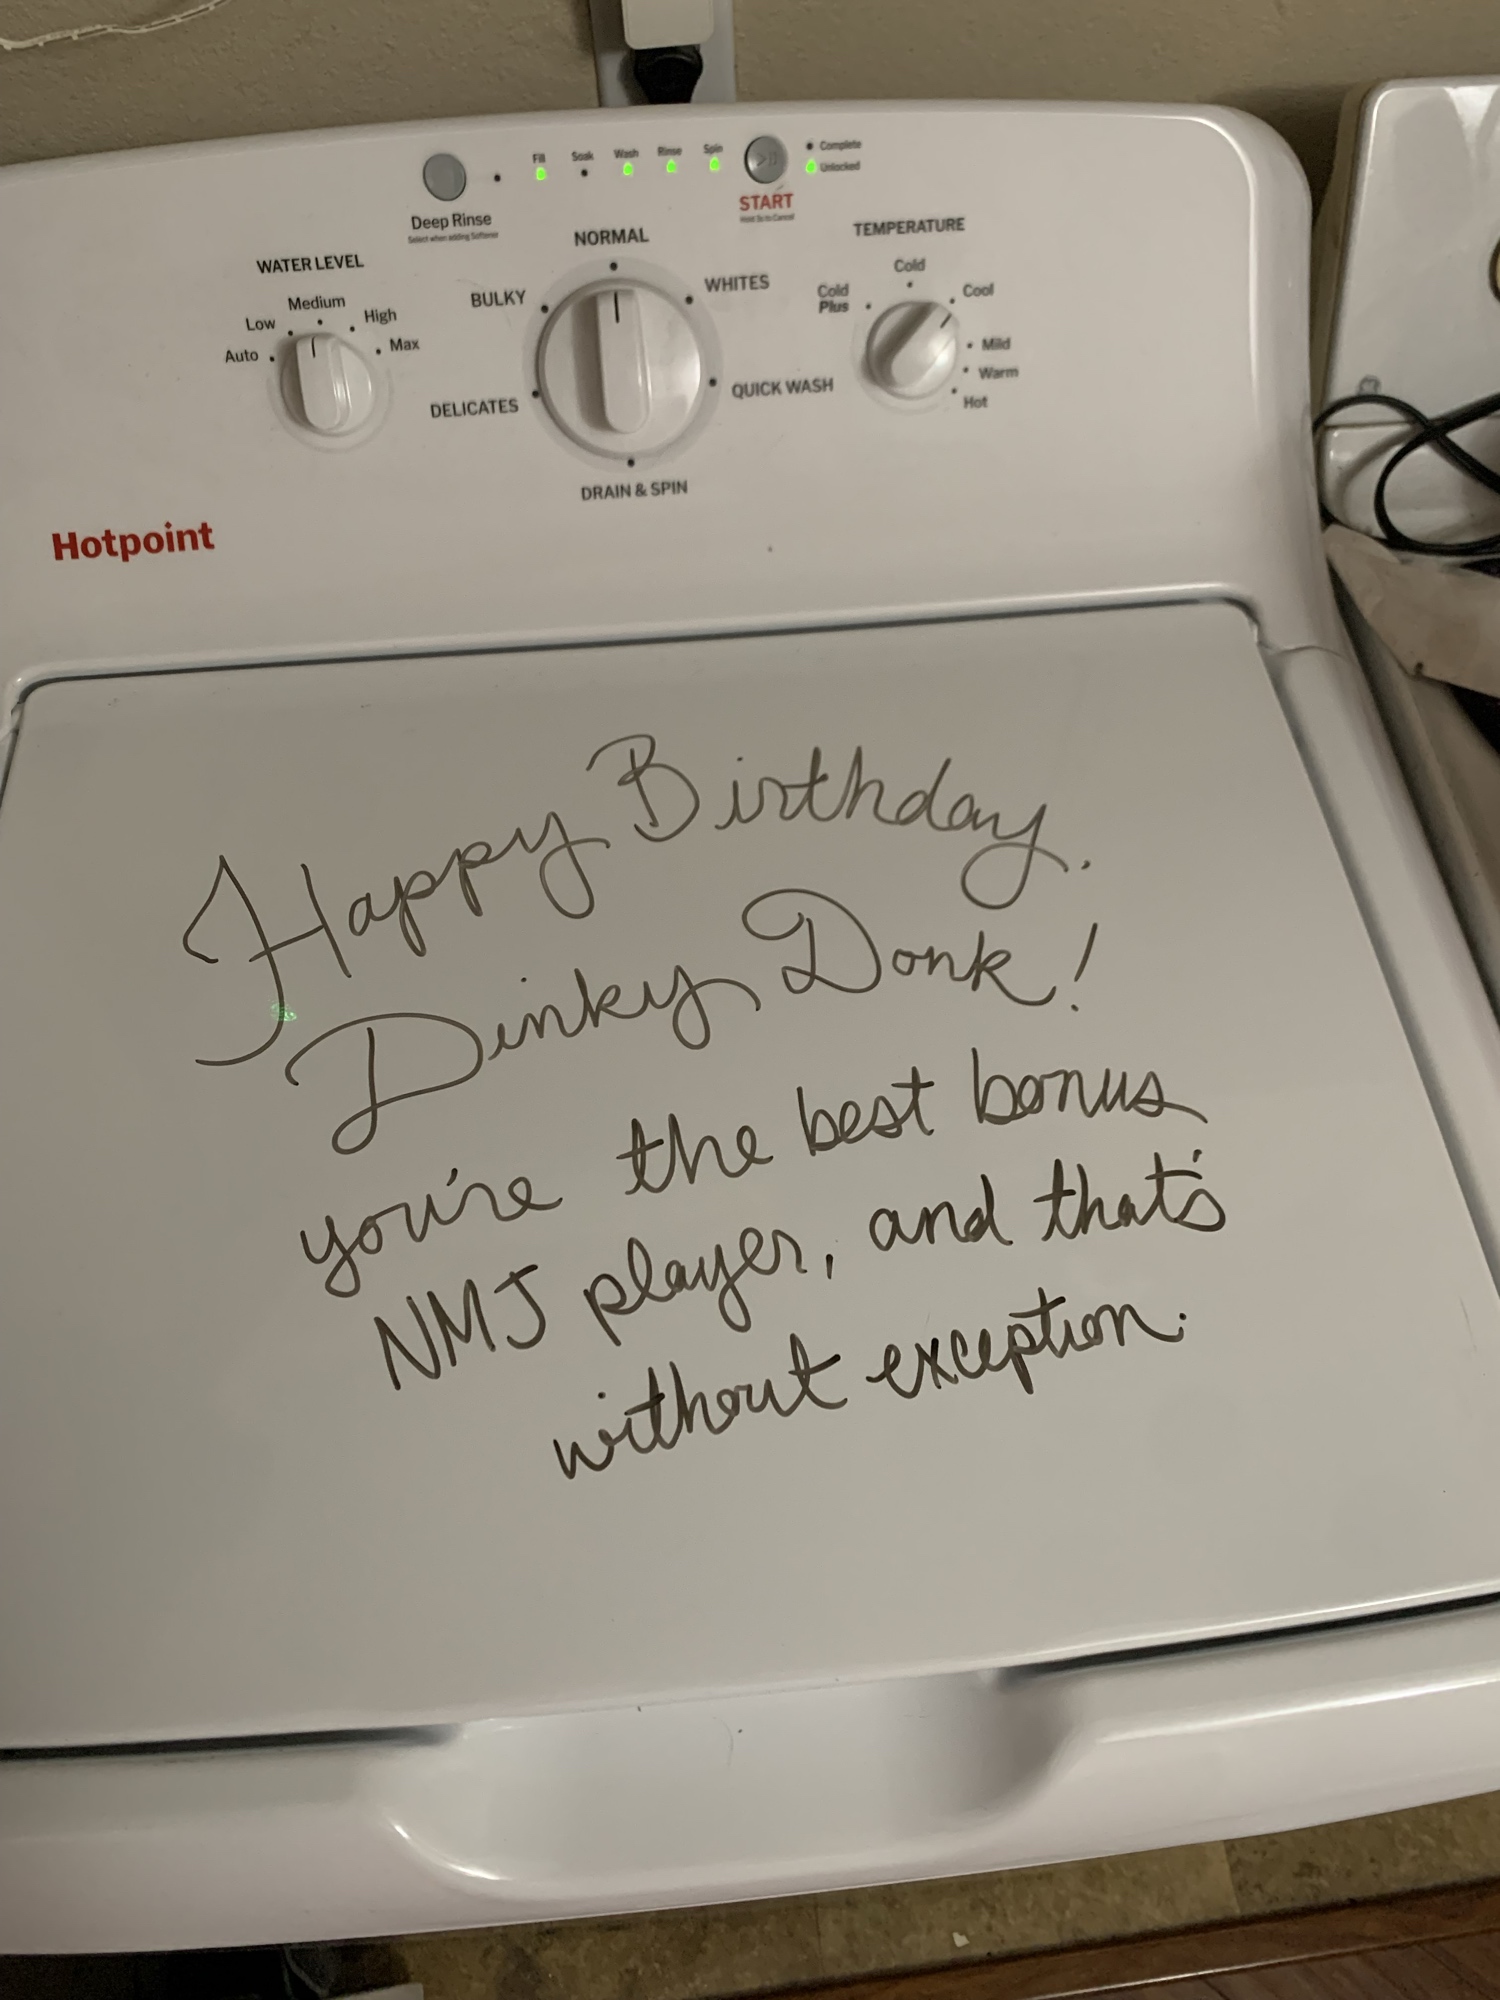 Fill Soak Wash Rinse Spin
Complete
Unlocked
Deep Rinse
Select when adding Softener
START
Hold 3s to Cancel
WATER LEVEL
Auto Low Medium High Max
NORMAL
BULKY
WHITES
DELICATES
QUICK WASH
DRAIN & SPIN
TEMPERATURE
Cold Plus
Cold
Cool
Mild
Warm
Hot
Hotpoint
Happy Birthday.
Dinky Donk!
you're the best bonus
NMJ player, and that's
without exception.